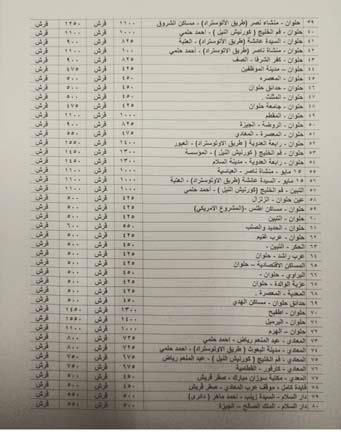 ٣٩ حلوان - منشاه نصر (طريق الاتوستراد) - مساكن الشروق ١١٠٠ قرش ١٢٥٠ قرش
٤٠ حلوان - فم الخليج ( كورنيش النيل ) - احمد حلمي ١٠٠٠ قرش ١١٠٠ قرش
٤١ حلوان - السيدة عائشة (طريق الاوتوستراد) - العتبة ٨٢٥ قرش ٩٠٠ قرش
٤٢ حلوان - منشاة ناصر (طريق الاتوستراد) - احمد حلمي قرش ١١٠٠ قرش
٤٣ حلوان - كفر الشرفا - الصف ٨٢٥ قرش ٩٠٠ قرش
٤٤ حلوان - مدينة الموظفين ٤٢٥ قرش ٤٧٥ قرش
٤٥ حلوان - المعصره ٤٥٠ قرش ٥٠٠ قرش
٤٦ حلوان - حدائق حلوان ٤٥٠ قرش ٥٠٠ قرش
٤٧ حلوان - المثلث ٤٥٠ قرش ٥٠٠ قرش
٤٨ حلوان - جامعة حلوان ٤٢٥ قرش ٤٧٥ قرش
٤٩ حلوان - المقطم ١٠٠٠ قرش ١١٠٠ قرش
٥٠ حلوان - الروضة - الجيزة ٨٢٥ قرش ٩٠٠ قرش
٥١ حلوان - المعصرة - المعادي ٤٧٥ قرش ٥٥٠ قرش
٥٢ حلوان - رابعة العدوية (طريق الاوتوستراد) - العبور ١٤٠٠ قرش ١٥٥٠ قرش
٥٣ حلوان - فم الخليج ( كورنيش النيل ) - المؤسسة ١٣٠٠ قرش ١٤٥٠ قرش
٥٤ حلوان - رابعة العدوية - مدينة السلام ١٣٠٠ قرش ١٤٥٠ قرش
٥٥ ١٥ مايو - منشاة ناصر - العباسية ١٠٠٠ قرش ١١٠٠ قرش
٥٦ ١٥ مايو - السيدة عائشة (طريق الاوتوستراد) - العتبة ١٠٠٠ قرش ١١٠٠ قرش
٥٧ التبين - فم الخليج (كورنيش النيل ) - احمد حلمي ١٠٠٠ قرش ١١٠٠ قرش
٥٨ عين حلوان - الزلزال ٤٢٥ قرش ٥٠٠ قرش
٥٩ حلوان - مساكن اطلس -(المشروع الامريكي) ٤٢٥ قرش ٥٠٠ قرش
٦٠ حلوان - التبين ٤٢٥ قرش ٥٠٠ قرش
٦١ حلوان - الحديد والصلب ٥٥٠ قرش ٦٠٠ قرش
٦٢ حلوان - عرب غنيم ٤٢٥ قرش ٥٠٠ قرش
٦٣ الحكر - التبين ٤٢٥ قرش ٥٠٠ قرش
٦٤ عرب راشد - حلوان ٤٢٥ قرش ٥٠٠ قرش
٦٥ المساكن الاقتصادية - حلوان ٤٢٥ قرش ٥٠٠ قرش
٦٦ - حلوان ٤٥٠ قرش ٥٠٠ قرش
٦٧ عزبة الوالدة - حلوان ٤٢٥ قرش ٥٠٠ قرش
٦٨ - المعصرة ٤٥٠ قرش ٥٠٠ قرش
٦٩ حدائق حلوان - مساكن الهدي ٤٥٠ قرش ٥٠٠ قرش
٧٠ حلوان - اطفيح ١٣٠٠ قرش ١٤٥٠ قرش
٧١ حلوان - البرميل ١٤٠٠ قرش ١٥٥٠ قرش
٧٢ حلوان - الهرم ١٠٠٠ قرش ١١٠٠ قرش
٧٣ المعادي - عبد المنعم رياض - احمد حلمي ٧٢٥ قرش ٨٠٠ قرش
٧٤ المعادي - مدينة البعوث ( طريق الاوتوستراد) - احمد حلمي ٧٢٥ قرش ٨٠٠ قرش
٧٥ المعادي - فم الخليج ( كورنيش النيل ) - عبد المنعم رياض ٦٧٥ قرش ٧٥٠ قرش
٧٦ المعادي - كارفور - القطامية ٦٧٥ قرش ٧٥٠ قرش
٧٧ المعادي - مكتبة سوزان مبارك - صقر قريش ٤٥٠ قرش ٥٠٠ قرش
٧٨ فايدة كامل - موقف عرب المعادي - صقر قريش ٤٥٠ قرش ٥٠٠ قرش
٧٩ دار السلام - السيدة زينب - احمد ماهر ( دائري) ٤٥٠ قرش ٥٠٠ قرش
٨٠ دار السلام - الملك الصالح - الجيزة ٥٠٠ قرش ٥٥٠ قرش